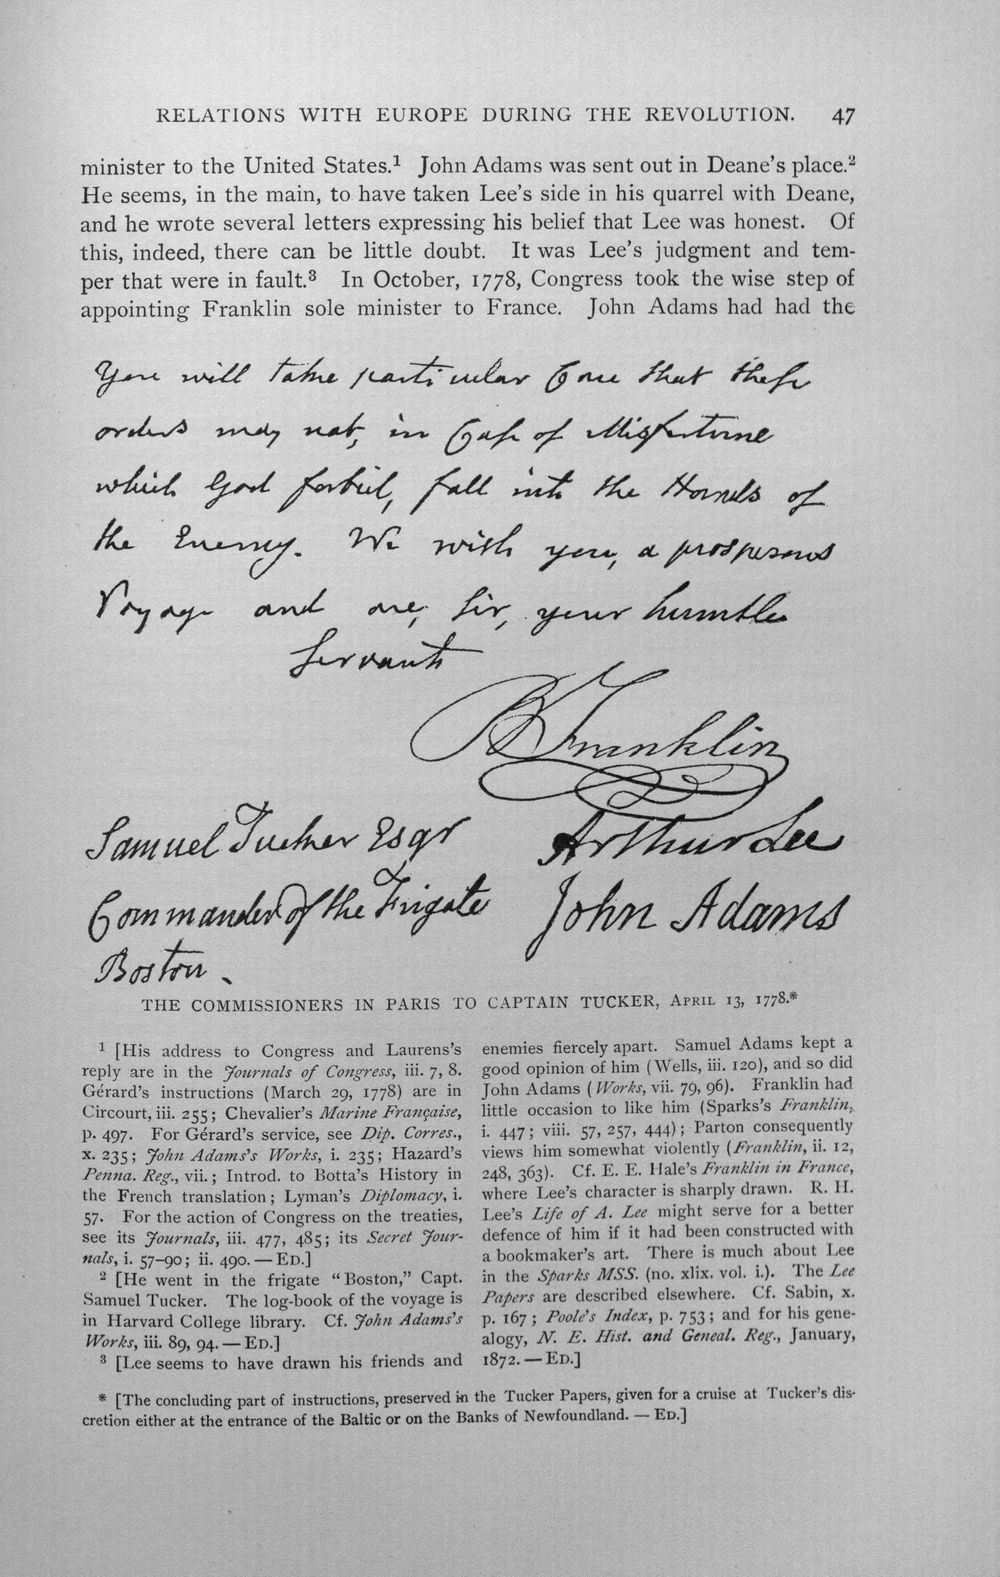 RELATIONS WITH EUROPE DURING THE REVOLUTION. 47
minister to the United States.¹ John Adams was sent out in Deane's place.²
He seems, in the main, to have taken Lee's side in his quarrel with Deane,
and he wrote several letters expressing his belief that Lee was honest. Of
this, indeed, there can be little doubt. It was Lee's judgment and tem-
per that were in fault.³ In October, 1778, Congress took the wise step of
appointing Franklin sole minister to France. John Adams had had the
You will take particular Care that these
orders may not, in Case of Misfortune
which God forbid, fall into the Hands of
the Enemy. We wish you, a prosperous
Voyage and are, Sir, your humble
Servants
B Franklin
Samuel Tucker Esqr
Arthur Lee
Commander of the Frigate
John Adams
Boston.
THE COMMISSIONERS IN PARIS TO CAPTAIN TUCKER, APRIL 13, 1778.*
¹ [His address to Congress and Laurens's
reply are in the Journals of Congress, iii. 7, 8.
Gérard's instructions (March 29, 1778) are in
Circourt, iii. 255; Chevalier's Marine Française,
p. 497. For Gérard's service, see Dip. Corres.,
x. 235; John Adams's Works, i. 235; Hazard's
Penna. Reg., vii.; Introd. to Botta's History in
the French translation; Lyman's Diplomacy, i.
57. For the action of Congress on the treaties,
see its Journals, iii. 477, 485; its Secret Jour-
nals, i. 57–90; ii. 490. — ED.]
² [He went in the frigate "Boston," Capt.
Samuel Tucker. The log-book of the voyage is
in Harvard College library. Cf. John Adams's
Works, iii. 89, 94. — ED.]
³ [Lee seems to have drawn his friends and
enemies fiercely apart. Samuel Adams kept a
good opinion of him (Wells, iii. 120), and so did
John Adams (Works, vii. 79, 96). Franklin had
little occasion to like him (Sparks's Franklin,
i. 447; viii. 57, 257, 444); Parton consequently
views him somewhat violently (Franklin, ii. 12,
248, 363). Cf. E. E. Hale's Franklin in France,
where Lee's character is sharply drawn. R. H.
Lee's Life of A. Lee might serve for a better
defence of him if it had been constructed with
a bookmaker's art. There is much about Lee
in the Sparks MSS. (no. xlix. vol. i.). The Lee
Papers are described elsewhere. Cf. Sabin, x.
p. 167; Poole's Index, p. 753; and for his gene-
alogy, N. E. Hist. and Geneal. Reg., January,
1872. — ED.]
* [The concluding part of instructions, preserved in the Tucker Papers, given for a cruise at Tucker's dis-
cretion either at the entrance of the Baltic or on the Banks of Newfoundland. — ED.]